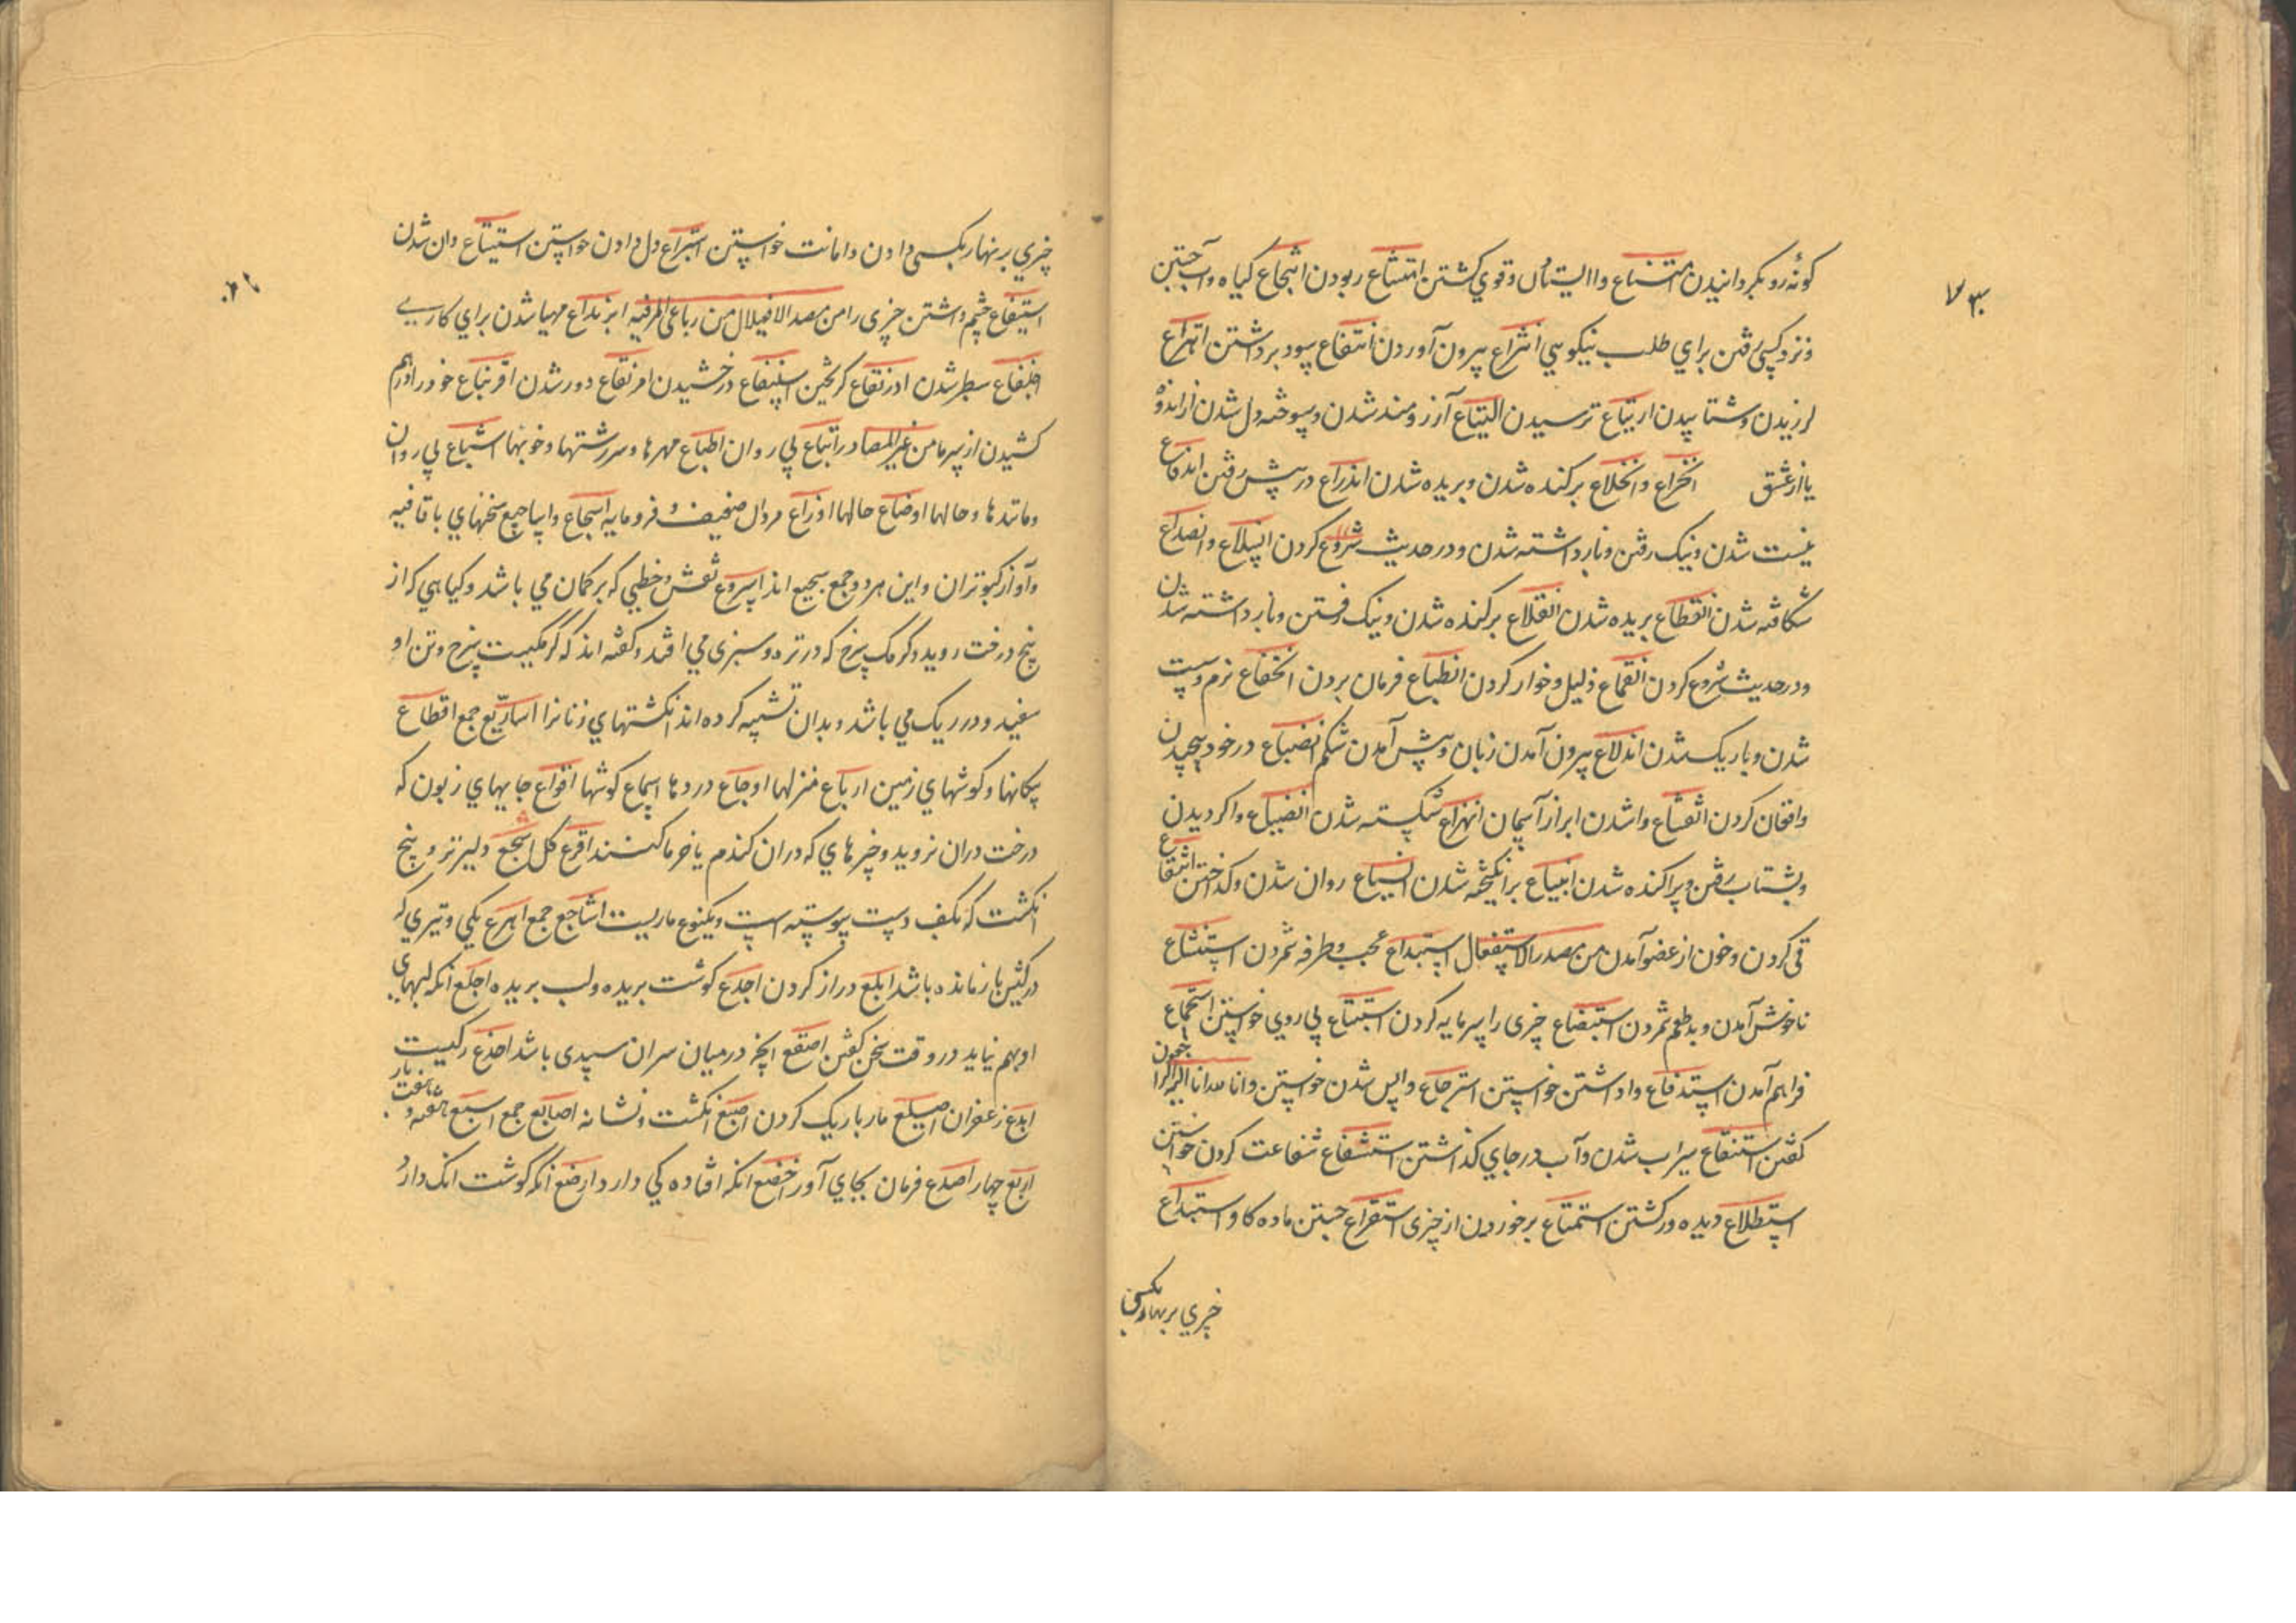 ۷۳
کونه رو بگردانیدن امتناع وا ایستادن و قوی کشتن امتشاع ربودن انتجاع کیاه و آب جستن
و نزد کسی رفتن برای طلب نیکویی انتزاع بیرون آوردن انتفاع سود برداشتن اهتراع
لرزیدن و شتابیدن ارتیاع ترسیدن التیاع آرزومند شدن و سوخته دل شدن از اندوه
یا از عشق انخراع و انخلاع برکنده شدن و بریده شدن اندراع در پیش رفتن اندفاع
نیست شدن و نیک رفتن و باز داشته شدن و در حدیث شروع کردن انسلاع و انصداع
شکافته شدن انقطاع بریده شدن انقلاع برکنده شدن و نیک رفتن و باز داشته شدن
و در حدیث شروع کردن انقماع ذلیل و خوار کردن انطباع فرمان بردن انخفاع نرم و سست
شدن و باریک شدن اندلاع بیرون آمدن زبان و پیش آمدن شکم انضباع در خود پیچیدن
و افغان کردن انقشاع واشدن ابر از آسمان انهزاع شکسته شدن انصیاع واکردیدن
و بشتاب رفتن و پراکنده شدن انبیاع برانگیخته شدن انسیاع روان شدن و کداختن
قی کردن و خون از عضو آمدن من مصدر الاستفعال استبداع عجب و طرفه شمردن استبشاع
ناخوش آمدن و بدطعم شمردن استبضاع چیزی را سرمایه کردن استتباع پی روی خواستن استجماع
فراهم آمدن استدفاع وا داشتن خواستن استرجاع واپس شدن خواستن و انا لله و انا الیه راجعون
کفتن استنقاع سیراب شدن و آب در جای کذاشتن استشفاع شفاعت کردن خواستن
استطلاع دیده ور کشتن استمتاع برخوردن از چیزی استقراع جستن ماده کاو استبداع
چیزی بزنهار بکسی
چیزی بزنهار بکسی دادن و امانت خواستن استبراع دل دادن خواستن استیتاع وان شدن
استیفاع چشم داشتن چیزی را من مصدر الافعیلال من رباعی المزفیه ابزنداع مهیا شدن برای کاری
اجلنفاع سطبر شدن ادرنقاع کریختن اسلنفاع درخشیدن امرنقاع دور شدن اقرنباع خود را درهم
کشیدن از سرما من غیر المصادر اتباع پی روان اطباع مهرها و سررشتها و خویها اشیاع پی روان
و مانندها و حالها اوضاع حالها اوزاع مردان ضعیف و فرومایه اسجاع و اساجیع سخنهای با قافیه
و آواز کبوتران و این هر دو جمع سجیع اند اسروع نقش و خطی که بر کمان می باشد و کیاهی که از
بیخ درخت روید و کرمک سرخ که در تره و سبزی می افتد و کفته اند که کرمکیست سرخ و تن او
سفید و در ریک می باشد و بدان تشبیه کرده اند انکشتهای زنانرا اساریع جمع اقطاع
پیکانها و کوشهای زمین ارباع منزلها اوجاع دردها اسماع کوشها اقواع جایهای زبون که
درخت دران نروید و چیزهای که دران کندم یا خرما کنند اقرع کل اشجع دلیرتر و بیخ
انکشت که بکف دست پیوسته است و یکنوع ماریست اشاجع جمع اهزع یکی و تیری که
در کیش باز مانده باشد ابلع دراز کردن اجدع کوشت بریده و لب بریده اجلع آنکه لبهای
او بهم نیاید در وقت سخن کفتن اصقع آنچه در میان سران سپیدی باشد اخدع رکیست
ایدع زعفران اصیلع مار باریک کردن اصبع انکشت و نشانه اصابع جمع اسبع هفته و هفت بار
اربع چهار اصدع فرمان بجای آور اخضع آنکه افتاده کی دارد ارضع آنکه کوشت اندک دارد